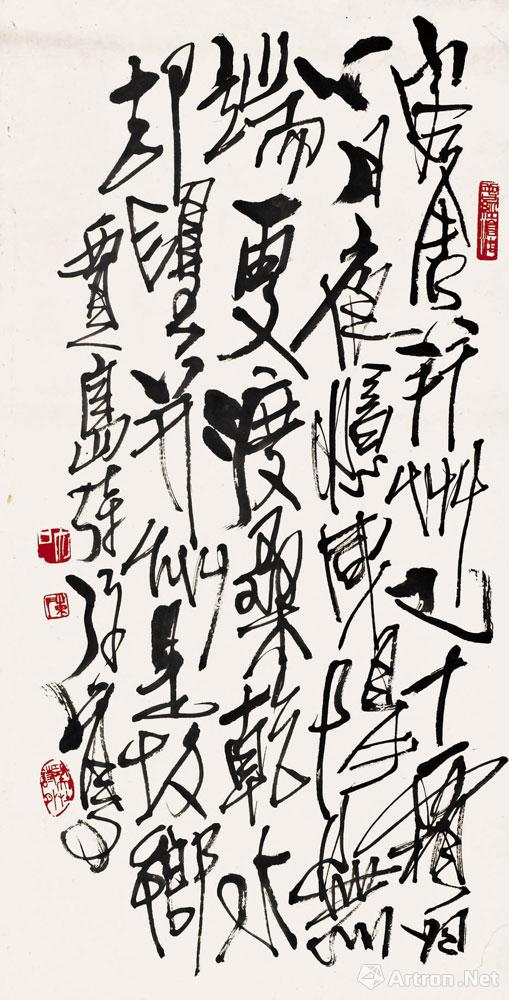 客舍并州已十霜歸
心日夜憶咸陽無
端更渡桑乾水
却望并州是故鄉
賈島詩
Artron.Net